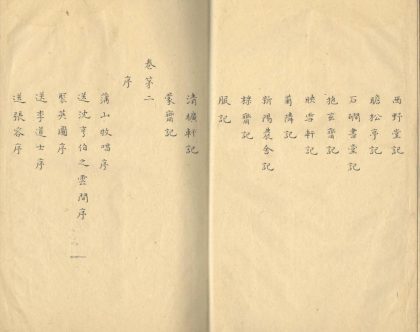 西野堂記
瞻松亭記
石磵書堂記
拖玄齋記
映雪軒記
菊隣記
新陽農舍記
棣齋記
服記
清樾軒記
蒙齋記
卷第二
序
蒲山牧唱序
送沈亨伯之雲間序
聚英圖序
送李道士序
送張容序